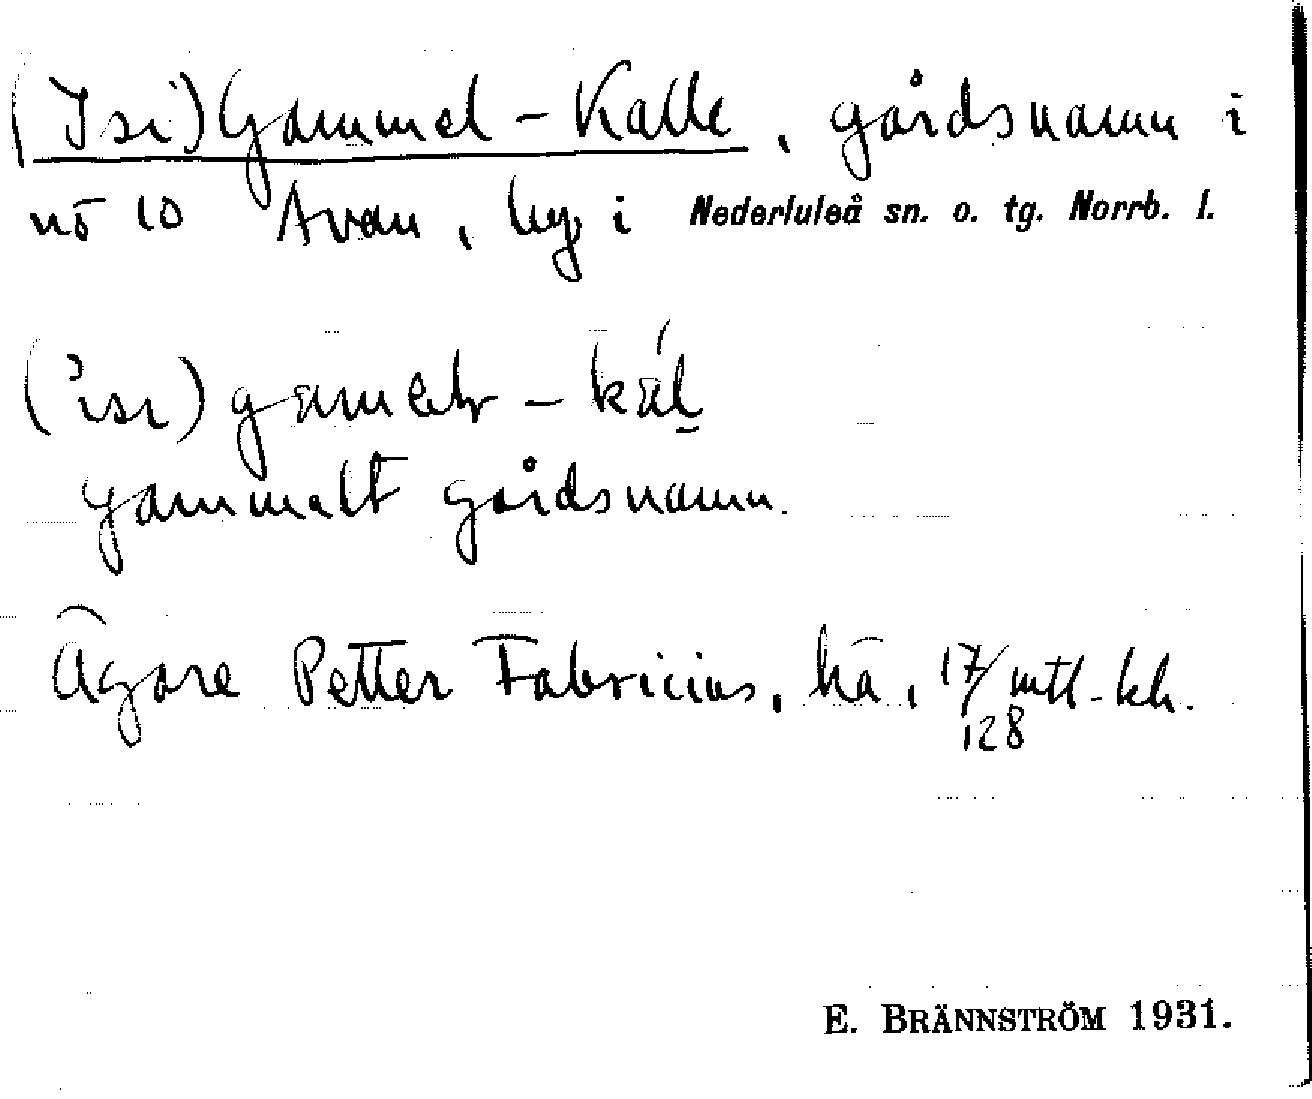 (Isi)Gammel-Kalle, gårdsnamn i
nō 10 Avan, by i Nederluleå sn. o. tg. Norrb. l.
gammalt gårdsnamn.
Ägare Petter Fabricius, hä, 17/128 mtl-kh.
E. BRÄNNSTRÖM 1931.